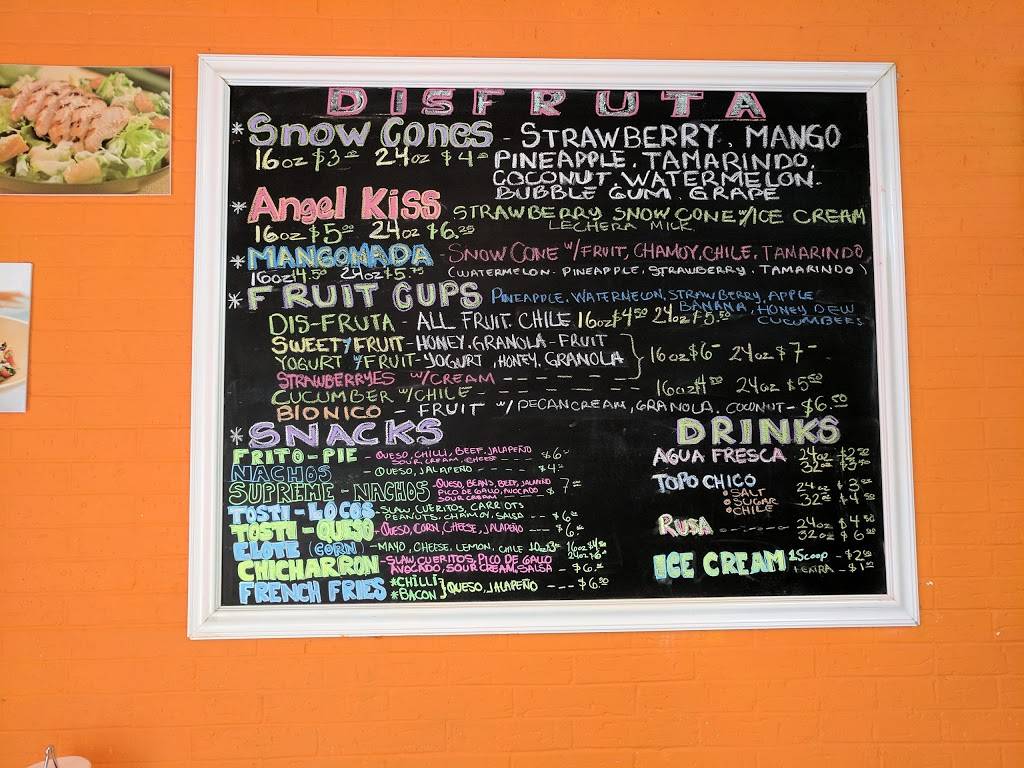 DISFRUTA
* Snow Cones - STRAWBERRY, MANGO
16oz $3.00 24oz $4.00 PINEAPPLE. TAMARINDO,
COCONUT, WATERMELON.
BUBBLE GUM. GRAPE
* Angel Kiss STRAWBERRY SNOW CONE W/ICE CREAM
16oz $5.00 24oz $6.25 LECHERA MILK
* MANGONADA - SNOW CONE W/FRUIT, CHAMOY, CHILE, TAMARINDO,
16oz $4.50 24oz $5.75 (WATERMELON. PINEAPPLE, STRAWBERRY. TAMARINDO)
* FRUIT CUPS PINEAPPLE. WATERMELON, STRAWBERRY, APPLE
BANANA, HONEY DEW
CUCUMBEES
DIS-FRUTA - ALL FRUIT. CHILE 16oz $4.50 24oz $5.50
SWEETY FRUIT - HONEY. GRANOLA - FRUIT
YOGURT Y FRUIT - YOGURT, HONEY. GRANOLA 16oz $6- 24oz $7-
STRAWBERRYES W/CREAM ----
CUCUMBER W/CHILE ---- 16oz 24oz $5.50
BIONICO - FRUIT W/ PECANCREAM, GRANOLA. COCONUT - $6.50
* SNACKS
FRITO-PIE - QUESO, CHILLI, BEEF, JALAPEÑO $6-
SOUR CREAM, CHEESE
NACHOS - QUESO, JALAPEÑO ---- $4.
SUPREME - NACHOS - QUESO, BEANS, BEEF, JALAPEÑO $7.
PICO DE GALLO, AVOCADO
SOUR CREAM
TOSTI-LOCOS - SLAW, CUERITOS, CARROTS
PEANUTS, CHAMOY, SALSA -- $6.
TOSTI-QUESO - QUESO, CORN, CHEESE, JALAPEÑO -- $6.
ELOTE (CORN) - MAYO, CHEESE, LEMON, CHILE
CHICHARRON - SLAW, CUERITOS, PICO DE GALLO
AVOCADO, SOUR CREAM, SALSA -- $6.
FRENCH FRIES *CHILLI
*BACON } QUESO, JALAPEÑO --- $6.50
DRINKS
AGUA FRESCA 24oz $2.50
32oz $3.50
TOPO CHICO 24oz $3.
32oz $4.
• SALT
• SUGAR
• CHILE
RUSA ------ 24oz $4.50
32oz $6.
ICE CREAM 1 Scoop - $2.
1 EXTRA - $1.